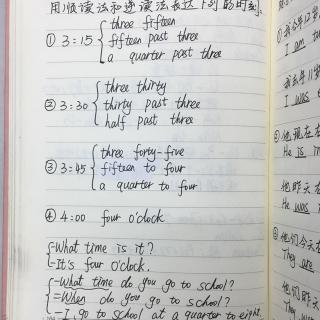 用顺读法和逆读法表达下列的时刻.
① 3:15 three fifteen
fifteen past three
a quarter past three
② 3:30 three thirty
thirty past three
half past three
③ 3:45 three forty-five
fifteen to four
a quarter to four
④ 4:00 four o'clock
-What time is it?
-It's four o'clock.
-What time do you go to school?
=When do you go to school?
-I go to school at a quarter to eight.
① 我今年12岁
I am
我去年11岁
I was
② 他现在在
He is in
他昨天在
He was
③ 他们今天在
They are
他们昨天